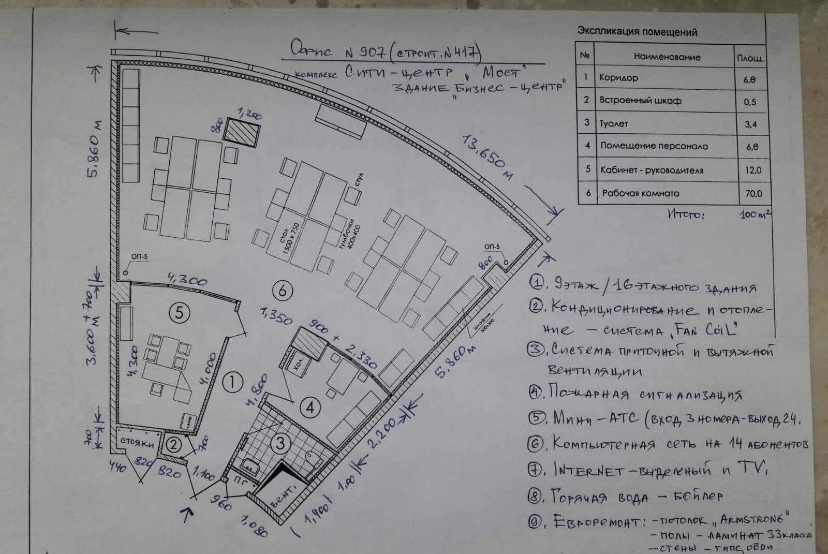 Офис N 907 (строит. N417)
комплекс Сити-центр „Мост"
здание „Бизнес-центр"
Экспликация помещений
№ Наименование Площ.
1 Коридор 6,8
2 Встроенный шкаф 0,5
3 Туалет 3,4
4 Помещение персонала 6,8
5 Кабинет - руководителя 12,0
6 Рабочая комната 70,0
Итого: 100 м²
13.650 м
5.860 м
1,200
800
стул
стол
1500 x 750
тумбочки
400x400
ОП-5
ОП-5
800
4,300
6
5
1,350
900 + 2.330
3.600 + 700
м
4.300
4,000
1
хол.
4
4,800
5.860 м
2.200
700
стояки
2
700
3
ПГ
вент.
440 820 820 1,100 960 1,080
1,400 1,00
① 9 этаж / 16 этажного здания
② Кондиционирование и отопле-
ние – система „Fan Coil"
③ Система приточной и вытяжной
вентиляции
④ Пожарная сигнализация
⑤ Мини-АТС (вход 3 номера-выход 24.
⑥ Компьютерная сеть на 14 абонентов
⑦ INTERNET-выделеный и TV,
⑧ Горячая вода – бойлер
⑨ Евроремонт: - потолок „ARMSTRONG"
- полы - ламинат 33 класса
- стены - гипс, обои